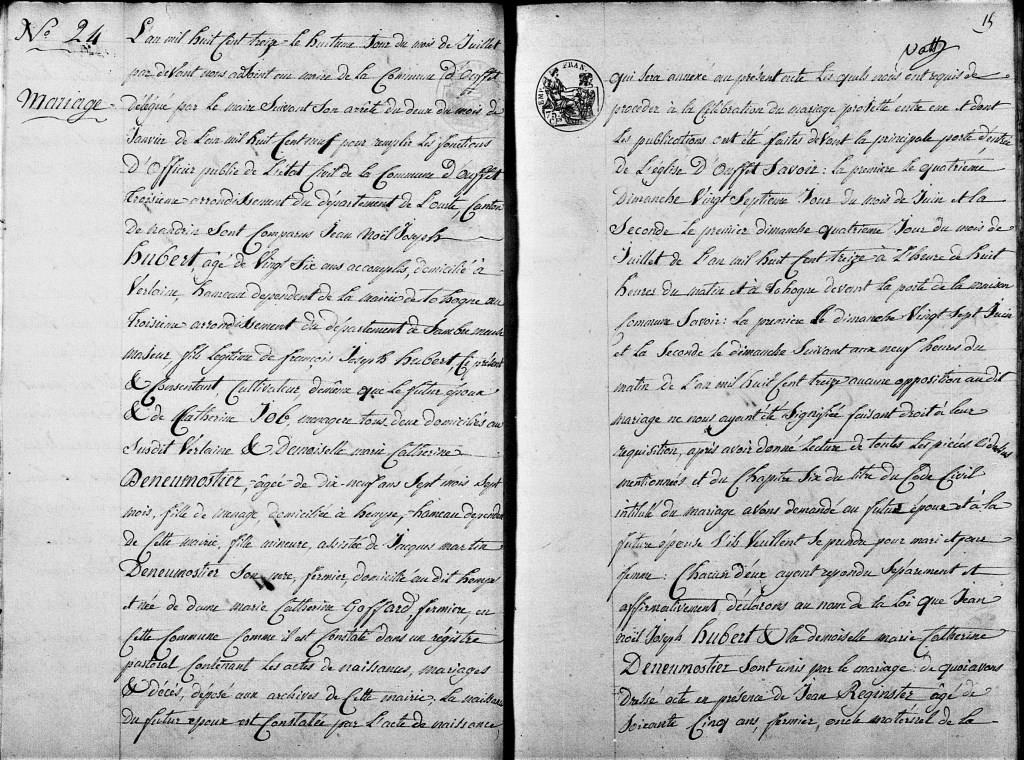 No 24
Mariage
L'an mil huit Cent treize le huitième Jour du mois de Juillet
par devant nous adjoint au maire de la Commune d'Ouffet
délégué par le maire Suivant Son arrêté du deux du mois de
Janvier de L'an mil huit Cent neuf pour remplir les fonctions
D'Officier public de L'état Civil de la Commune d'Ouffet
troisième arrondissement du département de L'ourte, Canton
de nandrin Sont Comparus Jean Noël Joseph
hubert, agé de Vingt Six ans accomplis, domicilié à
Verlaine, hameau dependent de la mairie de tohogne au
troisième arrondissement du département de Sambre meuse
majeur, fils légitime de françois Joseph hubert, Ci présent
& Consentant, Cultivateur, de même que Le futur époux
& de Catherine Job, menagère tous deux domiciliés au
Susdit Verlaine & Demoiselle marie Catherine
Deneumostier, agée de dix-neuf ans Sept mois Sept
mois, fille de menage, domiciliée à hempe, hameau dependant
de Cette mairie, fille mineure, assistée de Jacques martin
Deneumostier Son père, fermier, domicilié au dit hempe
et née de dame marie Catherine Goffard, fermière, en
Cette Commune Comme il est Constaté dans un régistre
pastoral Contenant Les actes de naissances, mariages
& décès, déposé aux archives de Cette mairie, La naissance
du futur epoux est Constatée par L'acte de naissance
15
qui Sera annexé au présent acte Les quels nous ont requis de
procéder à la Célébration du mariage projetté entre eux et dont
Les publications ont été faites devant la principale porte d'entrée
de L'église D'Ouffet Savoir: la première le quatrième
dimanche Vingt Septième Jour du mois de Juin et la
Seconde Le premier dimanche quatrième Jour du mois de
Juillet de L'an mil huit Cent treize à L'heure de huit
heures du matin et à tohogne devant la porte de la maison
Commune Savoir: La première le dimanche Vingt Sept Juin
et la Seconde le dimanche Suivant aux neuf heures du
matin de L'an mil huit Cent treize aucune opposition au dit
mariage ne nous ayant été Signifiée faisant droit à leur
requisition, après avoir donné Lecture de toutes Les pièces Ci dessus
mentionnées et du Chapitre Six du titre du Code Civil
intitulé du mariage avons demandé au futur époux et à la
future epouse S'ils Veuillent Se prendre pour mari et pour
femme: Chacun d'eux ayant repondu Separement et
affirmativement déclarons au nom de la Loi que Jean
noël Joseph hubert & la demoiselle marie Catherine
Deneumostier Sont unis par le mariage: de quoi avons
dressé acte en présence de Jean Reginster agé de
Soixante Cinq ans, fermier, oncle maternel de la